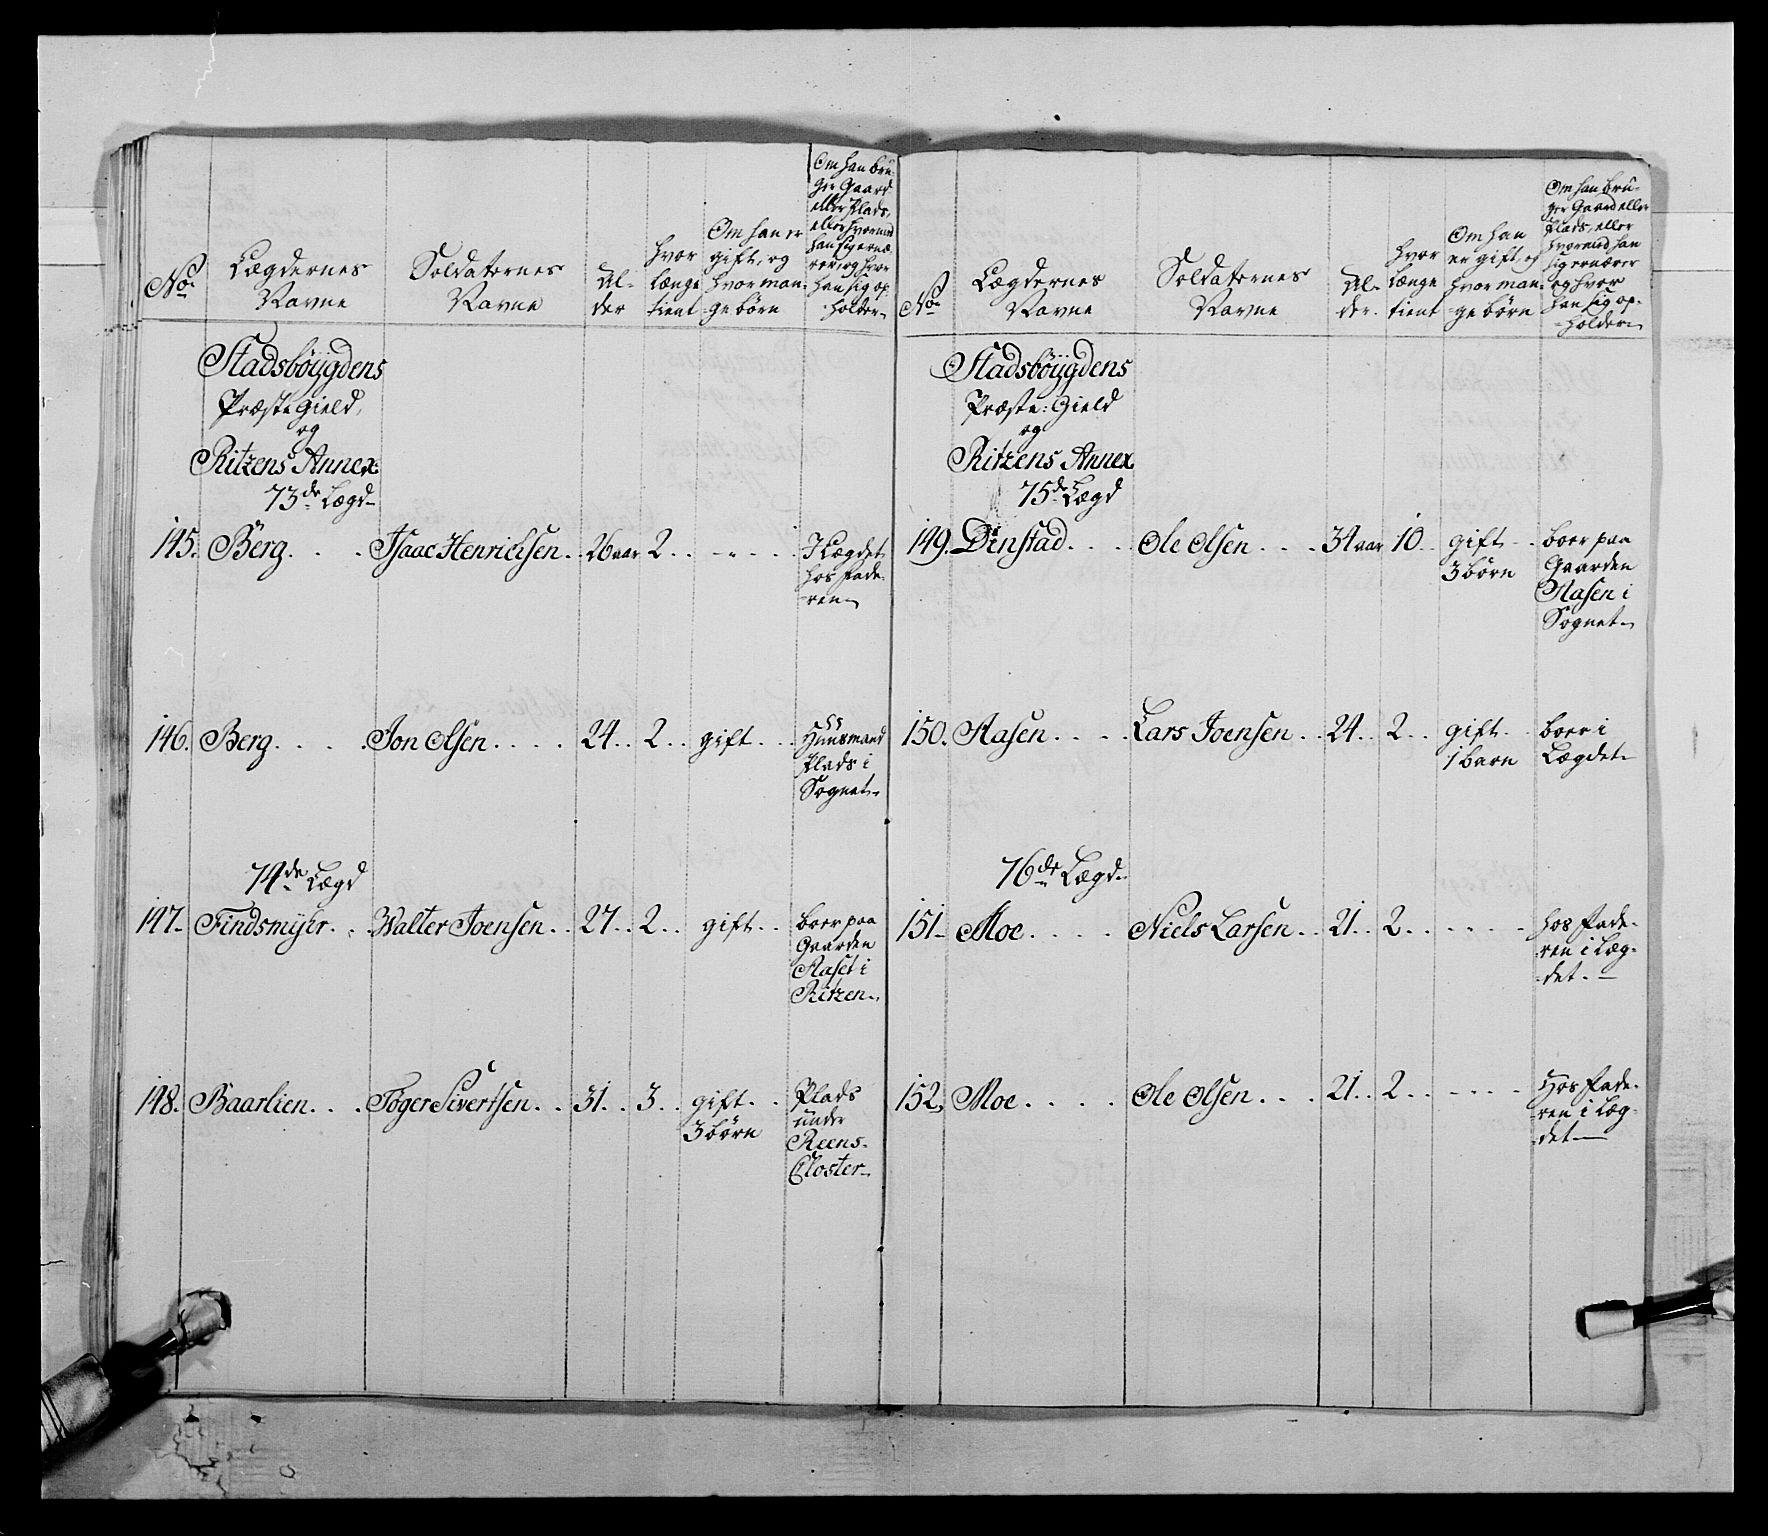 No.
Lægdernes
Navne
Soldaternes
Navne
Al-
der
hvor
længe
tient
Om han er
gift, og
hvor man-
ge børn
Om han bru-
ger Gaard
eller Plads,
eller hvormed
han sig ernæ-
rer, og hvor
han sig op-
holder
Stadsbøÿgdens
Præste Gield,
og
Ritzens Annex
73de Lægd
145. Berg. . . . Isaac Henrichsen. . 26 aar 2. . - . . . I Lægdet
hos fade-
ren
146. Berg. . . . . Jon Olsen. . . . 24. . 2. . gift. . . Huusmand
Plads i
Sognet
74de Lægd
147. Findsmÿhr. . . Walter Joensen. . 27. . 2. . gift. . boer paa
Gaarden
Aaset i
Ritzen
148. Baarlien. . . Toger Sivertsen. . 31. . 3. . gift. . Plads
3 børn under
Reens-
Closter
No.
Lægdernes
Navne
Soldaternes
Navne
Al-
der.
hvor
længe
tient
Om han
er gift, og
hvor man-
ge børn
Om han bru-
ger Gaard eller
Plads, eller
hvormed han
sig ernærer
og hvor
han sig op-
holder
Stadsbøÿgdens
Præste: Gield
og
Ritzens Annex
75de Lægd
149. Dinstad. . . . Ole Olsen. . . . 34 aar 10. . gift. . boer paa
3 børn Gaarden
Aasen i
Sognet
150. Aasen. . . . Lars Joensen. . 24. . 2. . gift. . boer i
1 barn Lægdet
76de Lægd
151. Moe. . . . Niels Larsen. . 21. . 2. . - - - - hos fade-
ren i Læg-
det. -
152. Moe. . . . Ole Olsen. . . 21. . 2. . - - - - Hos fade-
ren i Læg-
det